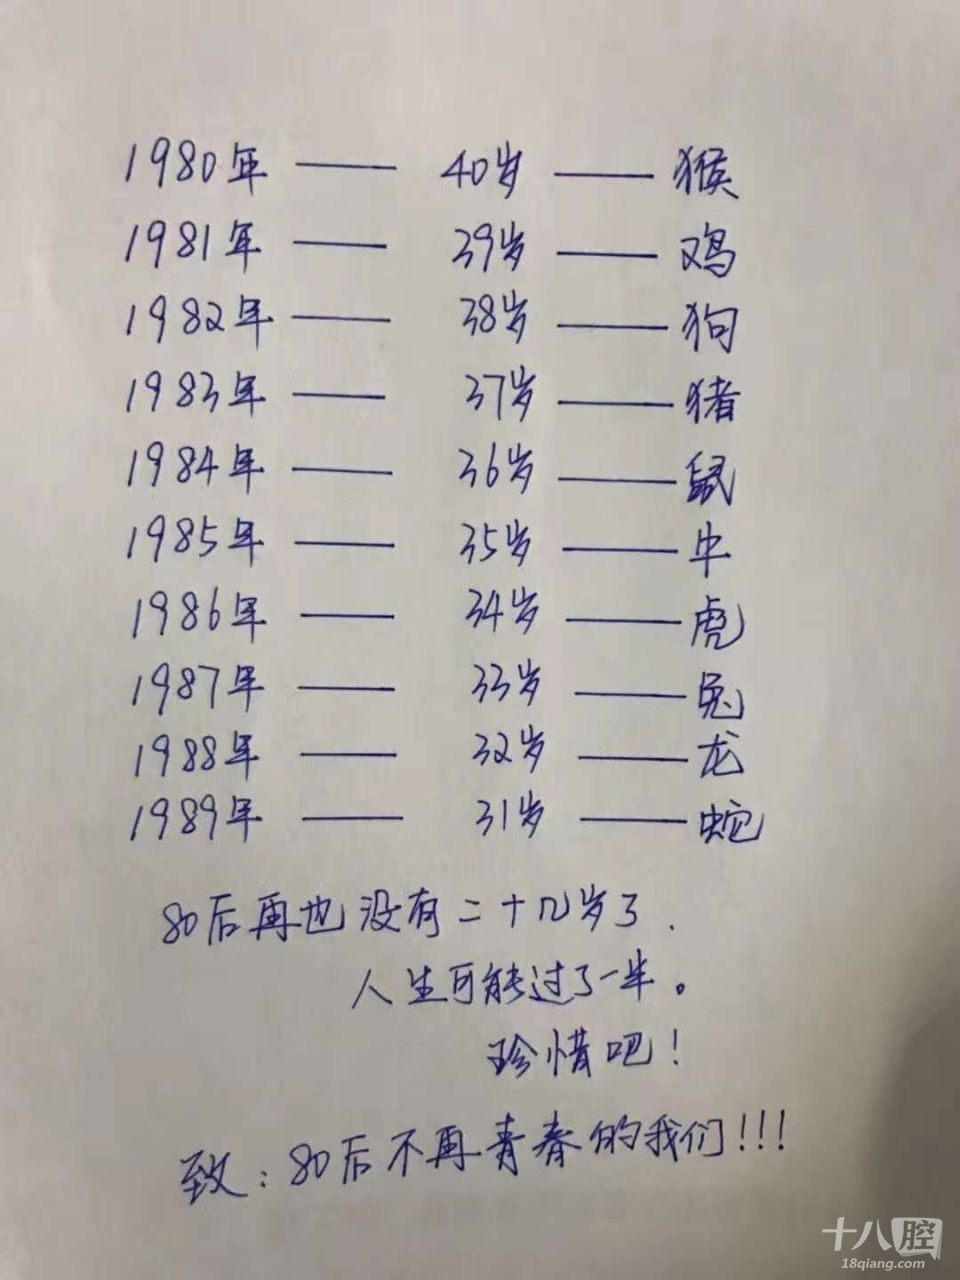 1980年 —— 40岁 —— 猴
1981年 —— 39岁 —— 鸡
1982年 —— 38岁 —— 狗
1983年 —— 37岁 —— 猪
1984年 —— 36岁 —— 鼠
1985年 —— 35岁 —— 牛
1986年 —— 34岁 —— 虎
1987年 —— 33岁 —— 兔
1988年 —— 32岁 —— 龙
1989年 —— 31岁 —— 蛇
80后再也没有二十几岁了.
人生可能过了一半。
珍惜吧!
致:80后不再青春的我们!!!
十八腔
18qiang.com